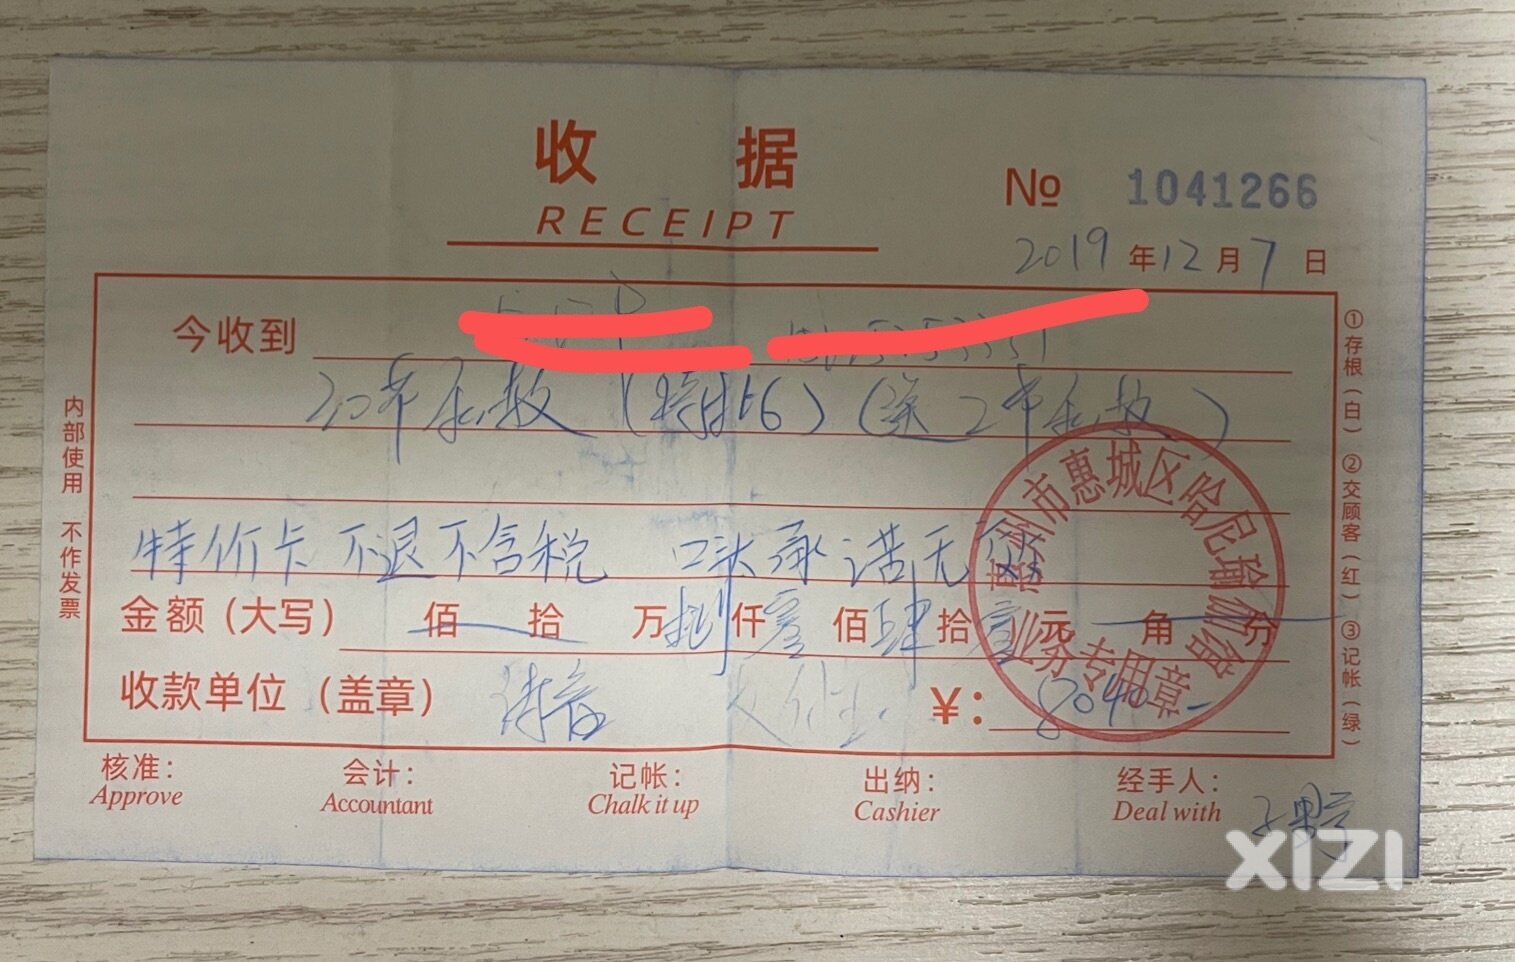 收 据
RECEIPT
№ 1041266
2019 年 12 月 7 日
今收到
20节私教（特批6）（送2节私教）
特价卡 不退不含税 口头承诺无效
金额（大写） 佰 拾 万 捌 仟 零 佰 肆 拾 零 元 角 分
收款单位（盖章） ¥： 8040-
惠州市惠城区哈尼瑜伽馆
业务专用章
核准： 会计： 记帐： 出纳： 经手人：
Approve Accountant Chalk it up Cashier Deal with
内部使用 不作发票
①存根（白） ②交顾客（红） ③记帐（绿）
XIZI